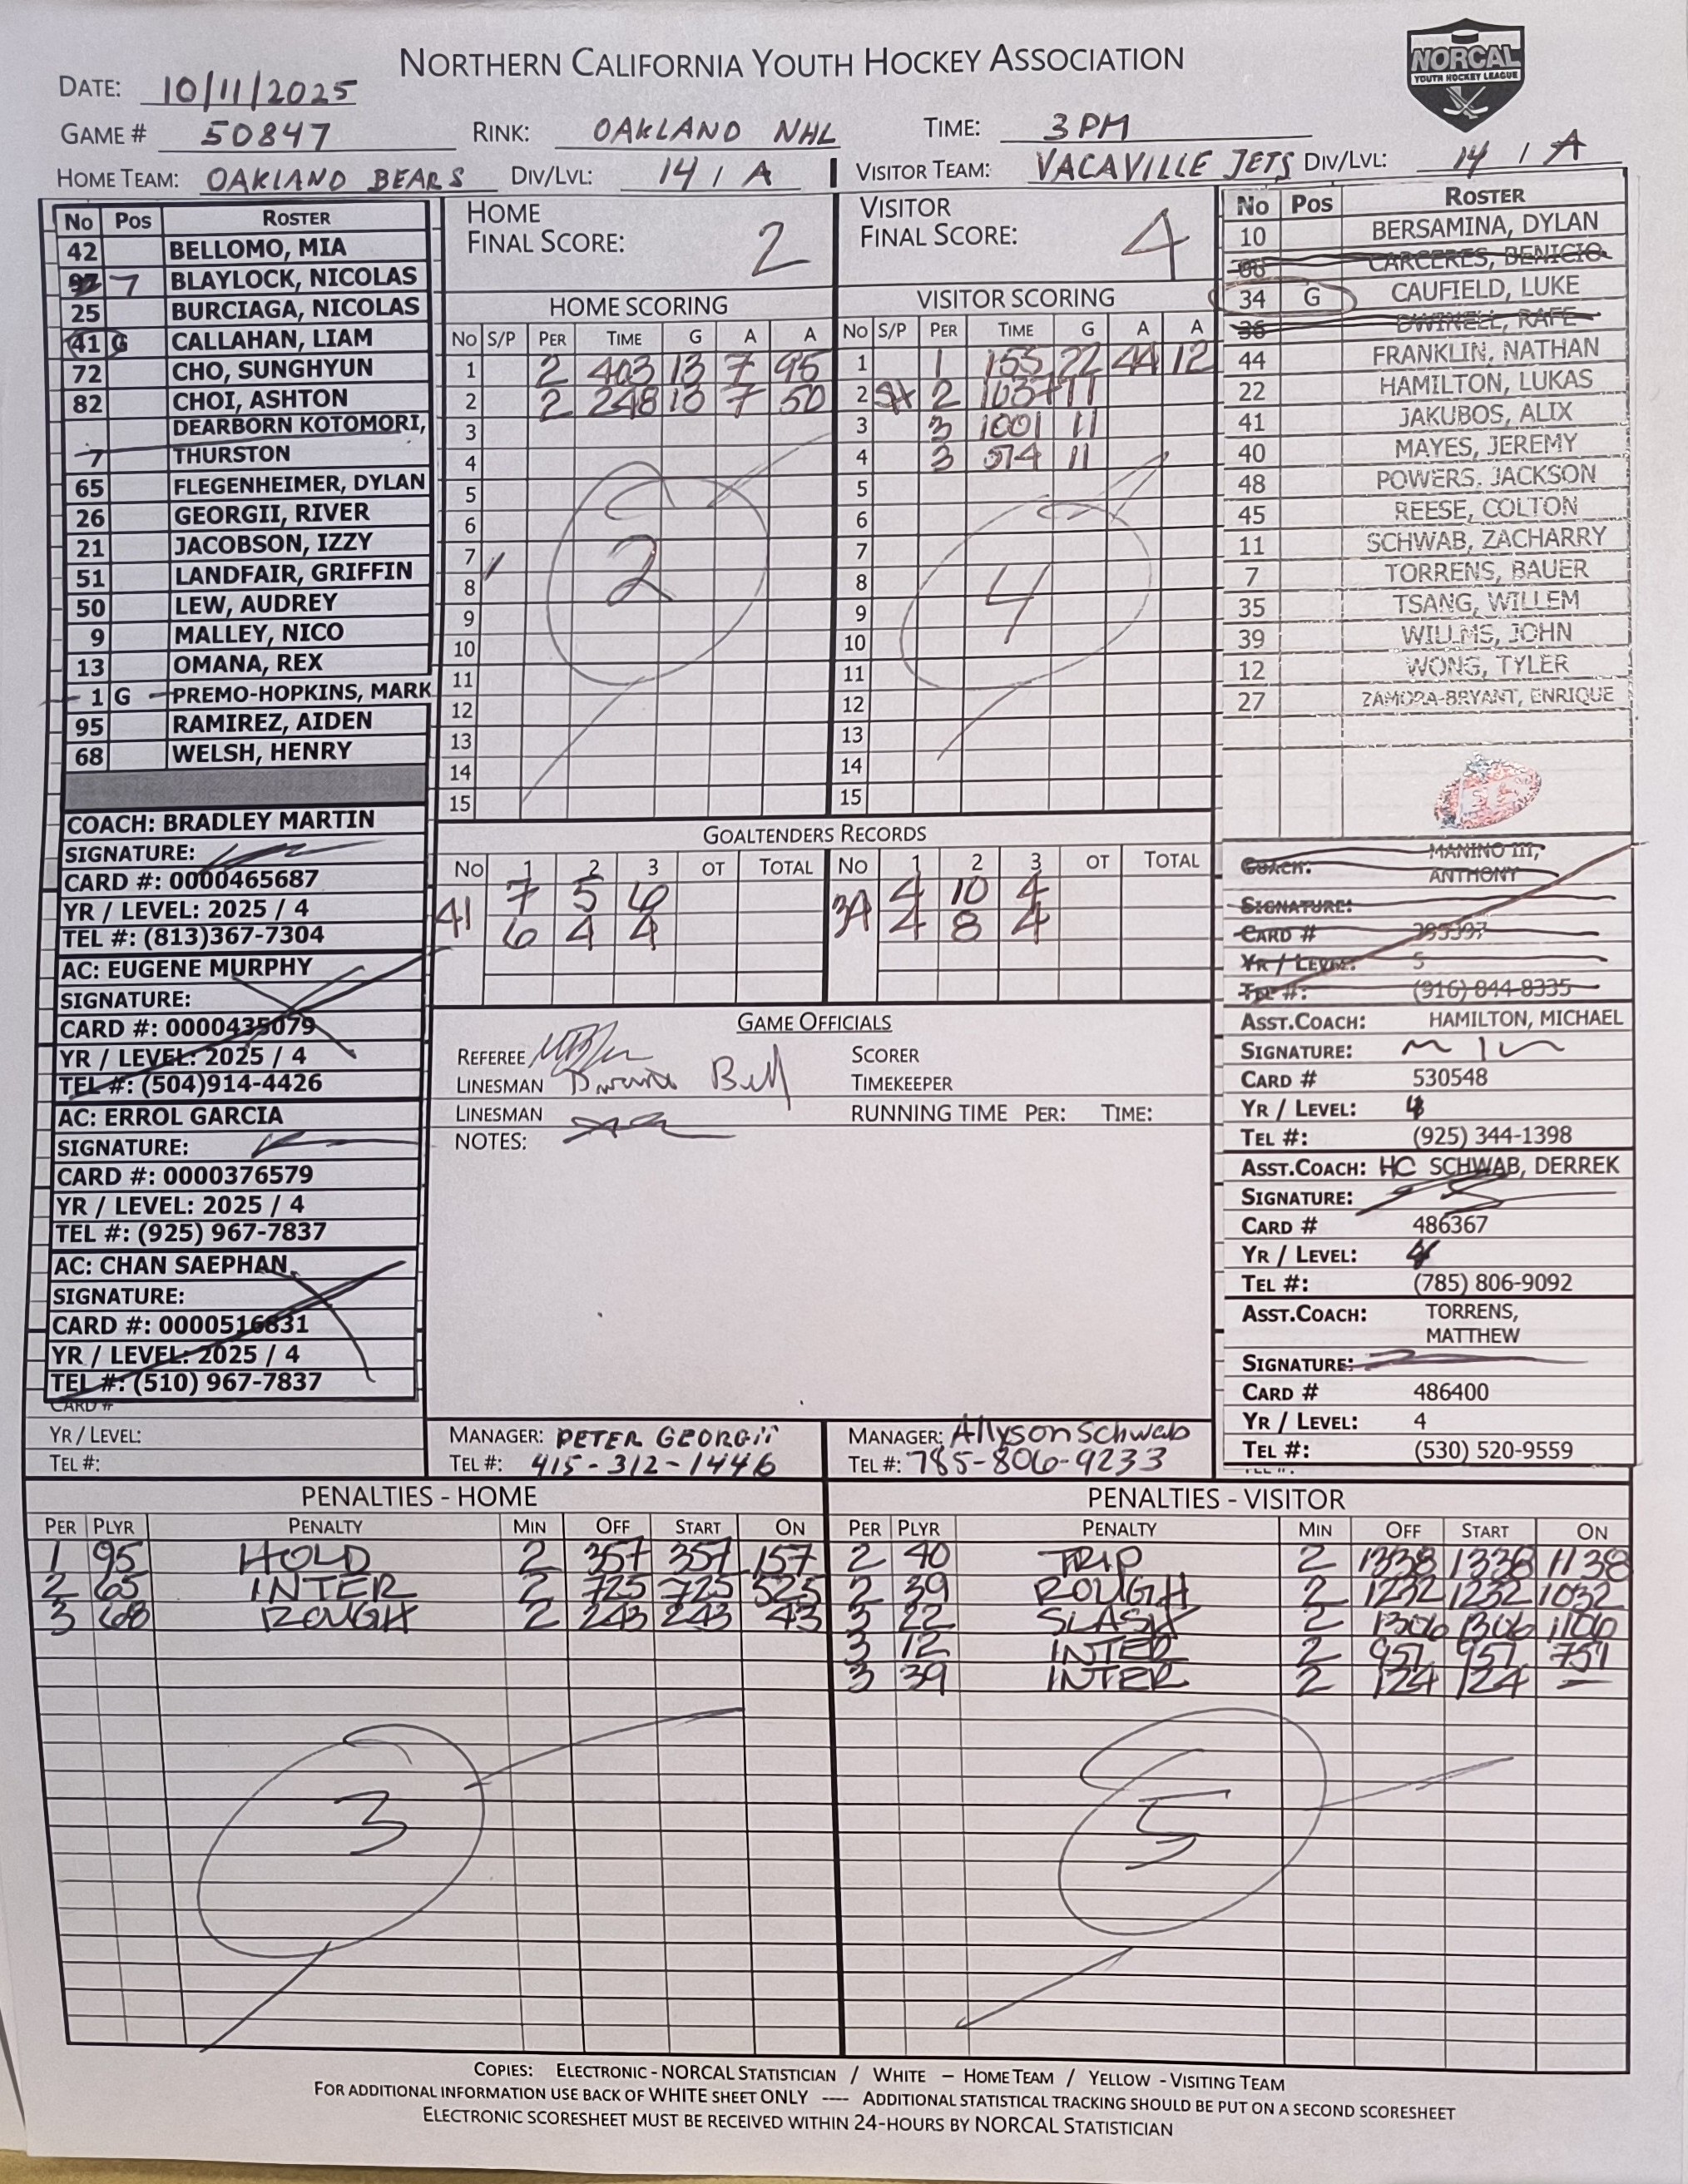 NORTHERN CALIFORNIA YOUTH HOCKEY ASSOCIATION
NORCAL
YOUTH HOCKEY LEAGUE
DATE: 10/11/2025
GAME # 50847 RINK: OAKLAND NHL TIME: 3PM
HOME TEAM: OAKLAND BEARS DIV/LVL: 14 / A VISITOR TEAM: VACAVILLE JETS DIV/LVL: 14 / A
No Pos ROSTER
42 BELLOMO, MIA
7 BLAYLOCK, NICOLAS
25 BURCIAGA, NICOLAS
41 G CALLAHAN, LIAM
72 CHO, SUNGHYUN
82 CHOI, ASHTON
DEARBORN KOTOMORI,
7 THURSTON
65 FLEGENHEIMER, DYLAN
26 GEORGII, RIVER
21 JACOBSON, IZZY
51 LANDFAIR, GRIFFIN
50 LEW, AUDREY
9 MALLEY, NICO
13 OMANA, REX
1 G PREMO-HOPKINS, MARK
95 RAMIREZ, AIDEN
68 WELSH, HENRY
COACH: BRADLEY MARTIN
SIGNATURE:
CARD #: 0000465687
YR / LEVEL: 2025 / 4
TEL #: (813)367-7304
AC: EUGENE MURPHY
SIGNATURE:
CARD #: 0000435079
YR / LEVEL: 2025 / 4
TEL #: (504)914-4426
AC: ERROL GARCIA
SIGNATURE:
CARD #: 0000376579
YR / LEVEL: 2025 / 4
TEL #: (925) 967-7837
AC: CHAN SAEPHAN
SIGNATURE:
CARD #: 0000516831
YR / LEVEL: 2025 / 4
TEL #: (510) 967-7837
CARD #
YR / LEVEL:
TEL #:
HOME
FINAL SCORE: 2
VISITOR
FINAL SCORE: 4
HOME SCORING
No S/P PER TIME G A A
1 2 403 13 7 95
2 2 248 13 7 50
3
4
5
6
7
8
9
10
11
12
13
14
15
2
VISITOR SCORING
No S/P PER TIME G A A
1 1 155 22 44 12
2 SH 2 1037 11
3 3 1001 11
4 3 514 11
5
6
7
8
9
10
11
12
13
14
15
4
GOALTENDERS RECORDS
No 1 2 3 OT TOTAL No 1 2 3 OT TOTAL
41 7 5 6 34 4 10 4
6 4 4 4 8 4
GAME OFFICIALS
REFEREE SCORER
LINESMAN Bell TIMEKEEPER
LINESMAN RUNNING TIME PER: TIME:
NOTES:
MANAGER: PETER GEORGII
TEL #: 415-312-1446
MANAGER: Allyson Schwab
TEL #: 785-806-9233
No Pos ROSTER
10 BERSAMINA, DYLAN
CARCERES, BENICIO
34 G CAUFIELD, LUKE
36 DWINELL, RAFE
44 FRANKLIN, NATHAN
22 HAMILTON, LUKAS
41 JAKUBOS, ALIX
40 MAYES, JEREMY
48 POWERS, JACKSON
45 REESE, COLTON
11 SCHWAB, ZACHARRY
7 TORRENS, BAUER
35 TSANG, WILLEM
39 WILLMS, JOHN
12 WONG, TYLER
27 ZAMORA-BRYANT, ENRIQUE
COACH: MANINO III,
ANTHONY
SIGNATURE:
CARD # 395397
YR / LEVEL: 5
TEL #: (916) 844-8335
ASST.COACH: HAMILTON, MICHAEL
SIGNATURE:
CARD # 530548
YR / LEVEL: 4
TEL #: (925) 344-1398
ASST.COACH: HC SCHWAB, DERREK
SIGNATURE:
CARD # 486367
YR / LEVEL: 4
TEL #: (785) 806-9092
ASST.COACH: TORRENS,
MATTHEW
SIGNATURE:
CARD # 486400
YR / LEVEL: 4
TEL #: (530) 520-9559
PENALTIES - HOME
PER PLYR PENALTY MIN OFF START ON
1 95 HOLD 2 357 357 157
2 65 INTER 2 725 725 525
3 68 ROUGH 2 243 243 43
3
PENALTIES - VISITOR
PER PLYR PENALTY MIN OFF START ON
2 40 TRIP 2 1338 1338 1138
2 39 ROUGH 2 1232 1232 1032
3 22 SLASH 2 1306 1306 1106
3 12 INTER 2 951 951 751
3 39 INTER 2 124 124 —
5
COPIES: ELECTRONIC - NORCAL STATISTICIAN / WHITE – HOME TEAM / YELLOW - VISITING TEAM
FOR ADDITIONAL INFORMATION USE BACK OF WHITE SHEET ONLY ---- ADDITIONAL STATISTICAL TRACKING SHOULD BE PUT ON A SECOND SCORESHEET
ELECTRONIC SCORESHEET MUST BE RECEIVED WITHIN 24-HOURS BY NORCAL STATISTICIAN